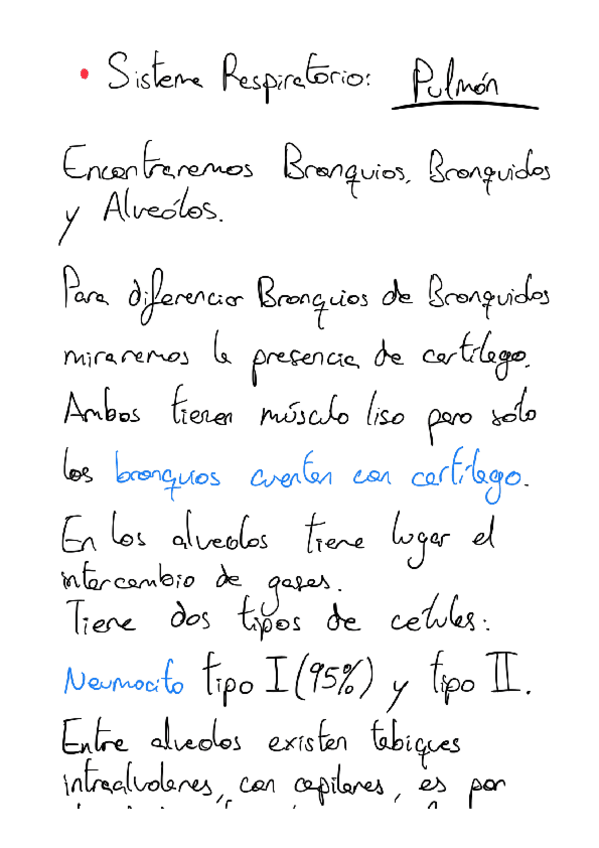 • Sistema Respiratorio: Pulmón
Encontraremos Bronquios, Bronquiolos
y Alveólos.
Para diferenciar Bronquios de Bronquiolos
miraremos la presencia de cartílago.
Ambos tienen músculo liso pero sólo
los bronquios cuentan con cartílago.
En los alveolos tiene lugar el
intercambio de gases.
Tiene dos tipos de células:
Neumocito tipo I (95%) y tipo II.
Entre alveolos existen tabiques
intraalvolares, con capilares, es por